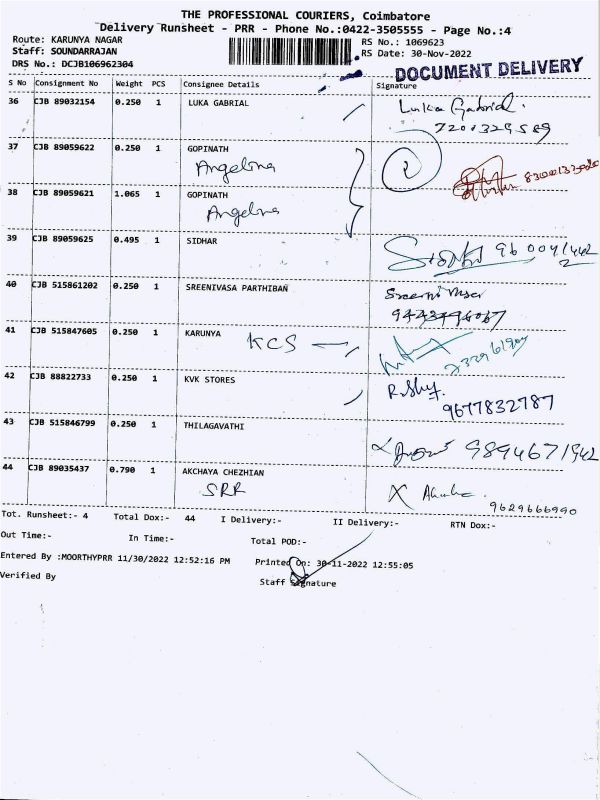 THE PROFESSIONAL COURIERS, Coimbatore
Delivery Runsheet - PRR - Phone No.:0422-3505555 - Page No.:4
Route: KARUNYA NAGAR RS No.: 1069623
Staff: SOUNDARRAJAN RS Date: 30-Nov-2022
DRS No.: DCJB106962304 DOCUMENT DELIVERY
S No Consignment No Weight PCS Consignee Details Signature
36 CJB 89032154 0.250 1 LUKA GABRIAL Luka Gabrial.
7200329589
37 CJB 89059622 0.250 1 GOPINATH
Angelina 2
38 CJB 89059621 1.065 1 GOPINATH
Angelina
39 CJB 89059625 0.495 1 SIDHAR
40 CJB 515861202 0.250 1 SREENIVASA PARTHIBAN
41 CJB 515847605 0.250 1 KARUNYA KCS
42 CJB 88822733 0.250 1 KVK STORES
9677832787
43 CJB 515846799 0.250 1 THILAGAVATHI
44 CJB 89035437 0.790 1 AKCHAYA CHEZHIAN
SRR 9629666990
Tot. Runsheet:- 4 Total Dox:- 44 I Delivery:- II Delivery:- RTN Dox:-
Out Time:- In Time:- Total POD:-
Entered By :MOORTHYPRR 11/30/2022 12:52:16 PM Printed On: 30-11-2022 12:55:05
Verified By Staff Signature